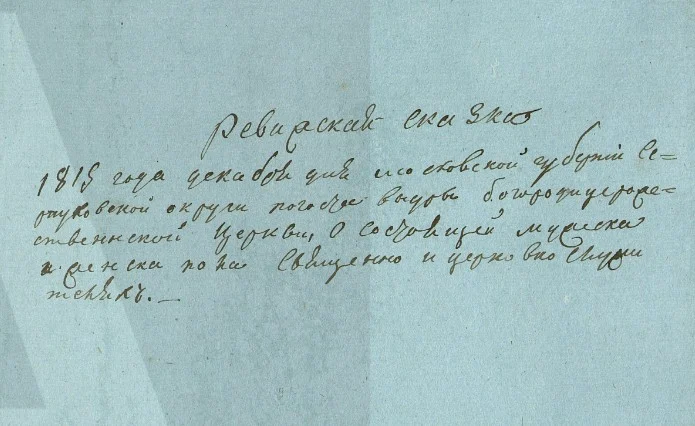 Ревизская сказка
1815 года декабря дня московской губернии Се=
рпуховской округи погоста выдры богородицерожде=
ственнской Церкви, О состоящей мужеска
и женска пола Священно и церковно служи
теляхъ. —